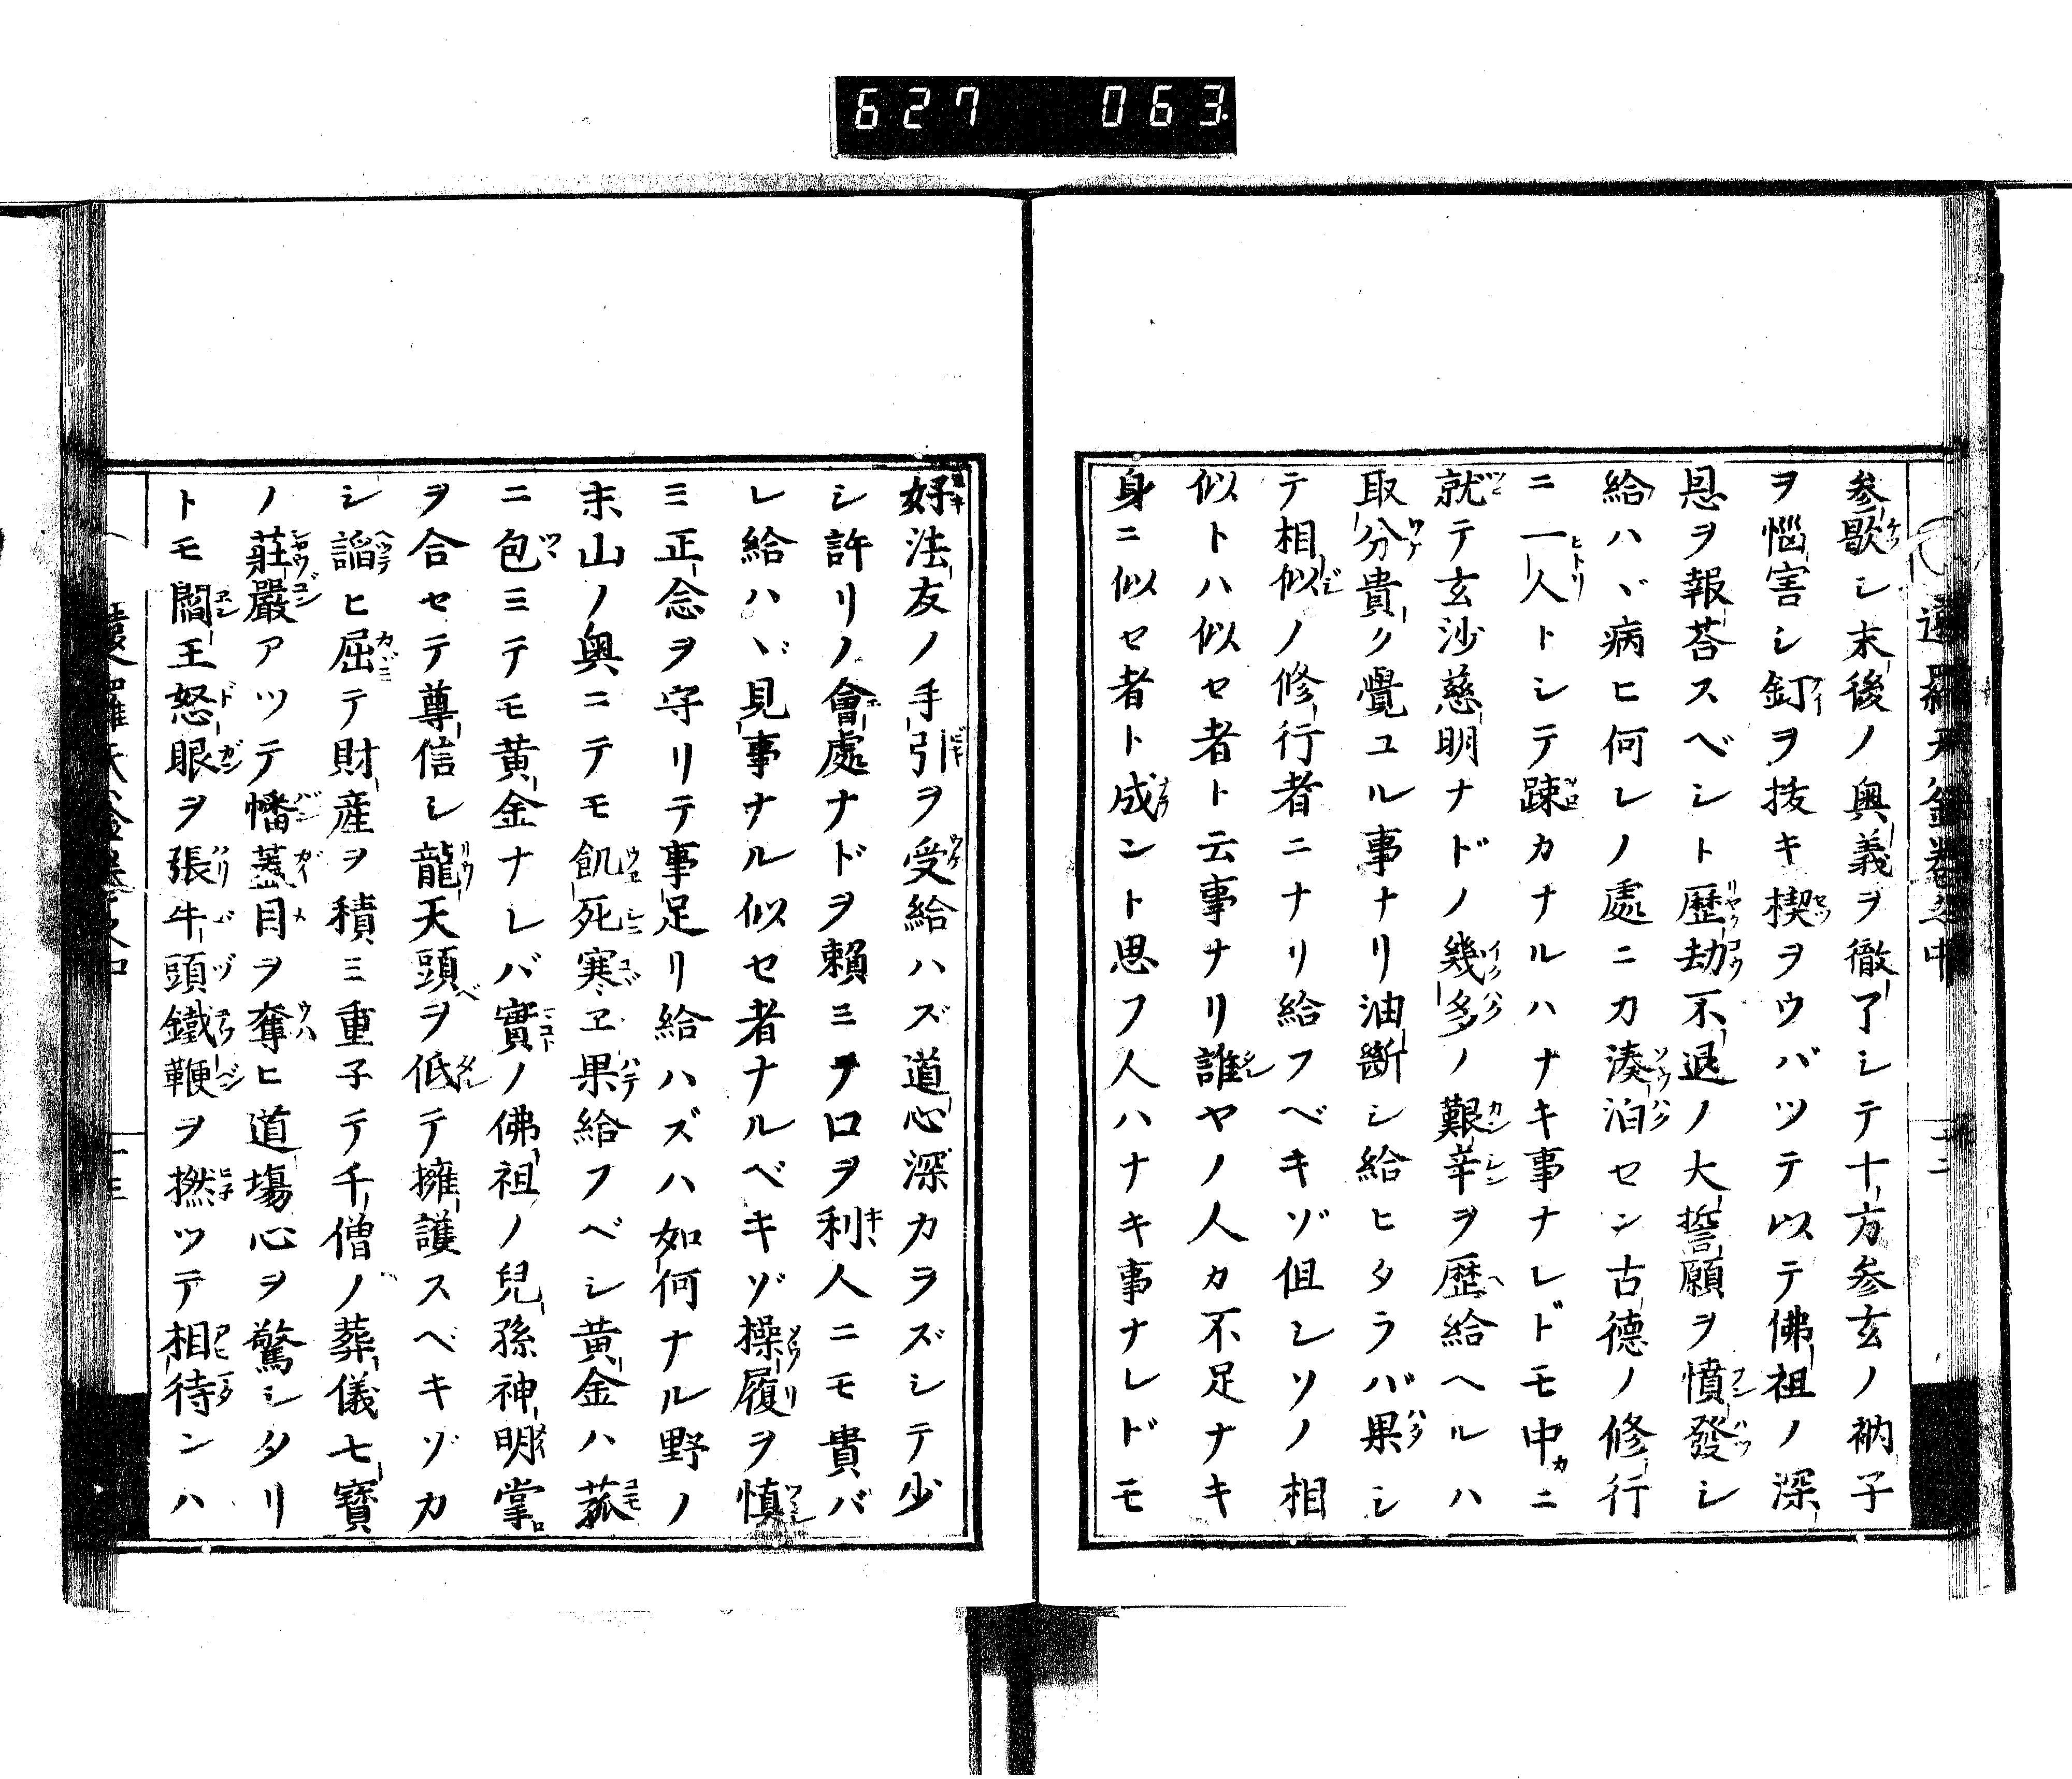 627 063
参歇シ末後ノ奥義ヲ徹了シテ十方参玄ノ衲子
ヲ惱害シ釘ヲ抜キ楔ヲウバツテ以テ佛祖ノ深
恩ヲ報荅スベシト歴劫不退ノ大誓願ヲ憤發シ
給ハヾ病ヒ何レノ處ニカ湊泊セン古德ノ修行
ニ一人トシテ踈カナルハナキ事ナレドモ中ニ
就テ玄沙慈明ナドノ幾多ノ艱辛ヲ歴給ヘルハ
取分貴ク覺ユル事ナリ油斷シ給ヒタラバ果シ
テ相似ノ修行者ニナリ給フベキゾ但シソノ相
似トハ似セ者ト云事ナリ誰ヤノ人カ不足ナキ
身ニ似セ者ト成ント思フ人ハナキ事ナレドモ
好法友ノ手引ヲ受給ハズ道心深カラズシテ少
シ許リノ會處ナドヲ頼ミヲロヲ利人ニモ貴バ
レ給ハヾ見事ナル似セ者ナルベキゾ操履ヲ慎
ミ正念ヲ守リテ事足リ給ハズハ如何ナル野ノ
末山ノ奥ニテモ飢死寒ヱ果給フベシ黄金ハ菰
ニ包ミテモ黄金ナレバ實ノ佛祖ノ兒孫神明掌
ヲ合セテ尊信シ龍天頭ヲ低テ擁護スベキゾカ
シ謟ヒ屈テ財産ヲ積ミ重子テ千僧ノ葬儀七寶
ノ莊嚴アツテ幡蓋目ヲ奪ヒ道塲心ヲ驚シタリ
トモ閻王怒眼ヲ張牛頭鐵鞭ヲ撚ツテ相待ンハ